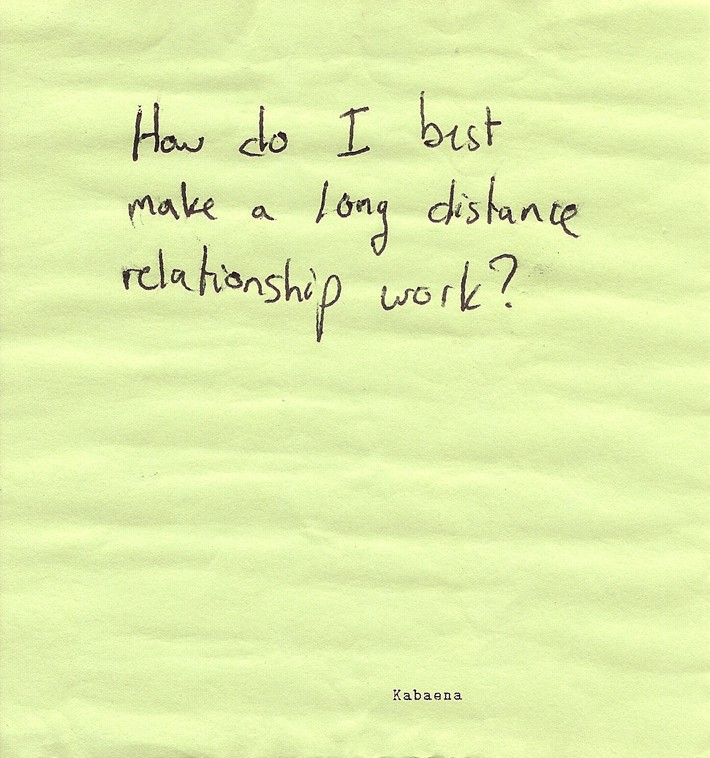 How do I best
make a long distance
relationship work?
Kabaena